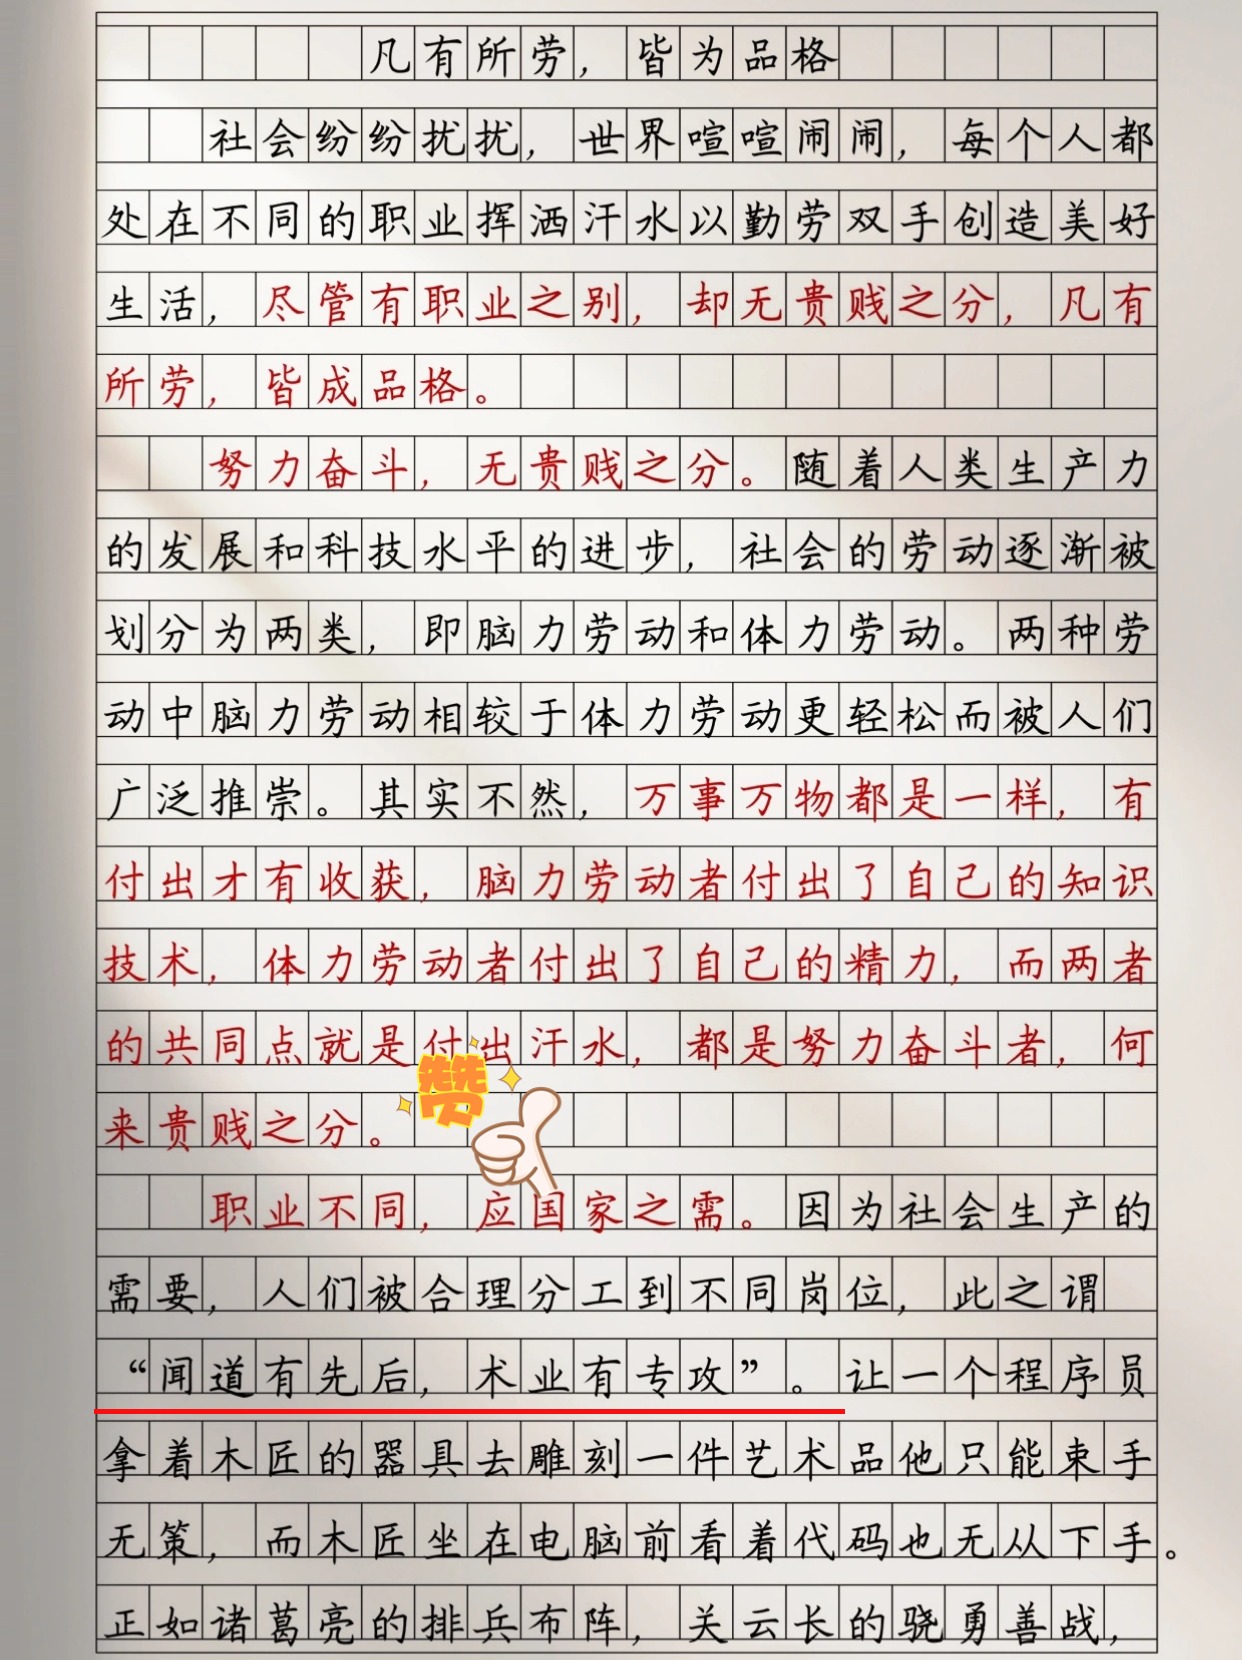 凡有所劳，皆为品格
社会纷纷扰扰，世界喧喧闹闹，每个人都
处在不同的职业挥洒汗水以勤劳双手创造美好
生活，尽管有职业之别，却无贵贱之分，凡有
所劳，皆成品格。
努力奋斗，无贵贱之分。随着人类生产力
的发展和科技水平的进步，社会的劳动逐渐被
划分为两类，即脑力劳动和体力劳动。两种劳
动中脑力劳动相较于体力劳动更轻松而被人们
广泛推崇。其实不然，万事万物都是一样，有
付出才有收获，脑力劳动者付出了自己的知识
技术，体力劳动者付出了自己的精力，而两者
的共同点就是付出汗水，都是努力奋斗者，何
来贵贱之分。
赞
职业不同，应国家之需。因为社会生产的
需要，人们被合理分工到不同岗位，此之谓
“闻道有先后，术业有专攻”。让一个程序员
拿着木匠的器具去雕刻一件艺术品他只能束手
无策，而木匠坐在电脑前看着代码也无从下手。
正如诸葛亮的排兵布阵，关云长的骁勇善战，